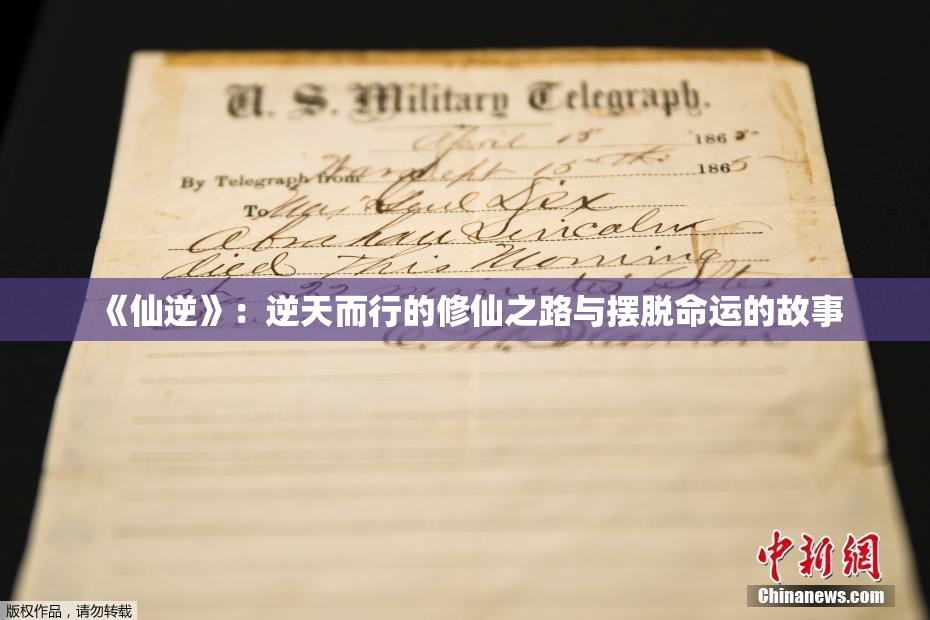 U. S. Military Telegraph.
April 15 1865
By Telegraph from War Dept 15th 1865
To Maj Genl Dix
Abraham Lincoln
died This Morning
22 minutes After
《仙逆》：逆天而行的修仙之路与摆脱命运的故事
E. M. Stanton
中新网
Chinanews.com
版权作品，请勿转载